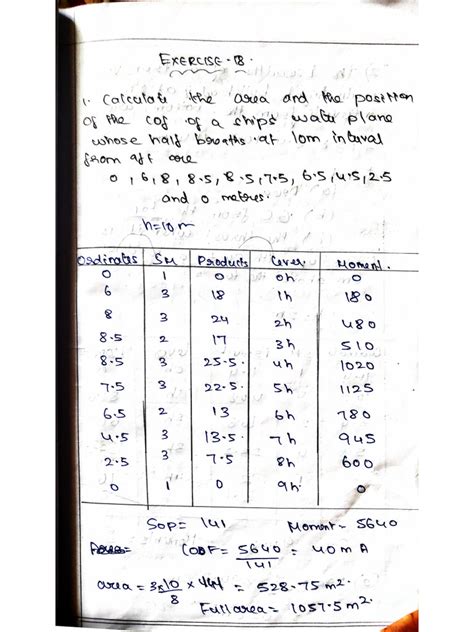 EXERCISE-18.
1. Calculate the area and the position
of the cof of a ships water plane
whose half breaths at 10m interval
from aft are
0, 6, 8, 8.5, 8.5, 7.5, 6.5, 4.5, 2.5
and 0 metres.
h=10m
Ordinates SM Products Lever Moment
0 1 0 0h 0
6 3 18 1h 180
8 3 24 2h 480
8.5 2 17 3h 510
8.5 3 25.5 4h 1020
7.5 3 22.5 5h 1125
6.5 2 13 6h 780
4.5 3 13.5 7h 945
2.5 3 7.5 8h 600
0 1 0 9h 0
SOP= 141 Moment- 5640
COF= 5640/141 = 40m A
area = 3x10/8 x 141 = 528.75 m².
Full area = 1057.5 m².